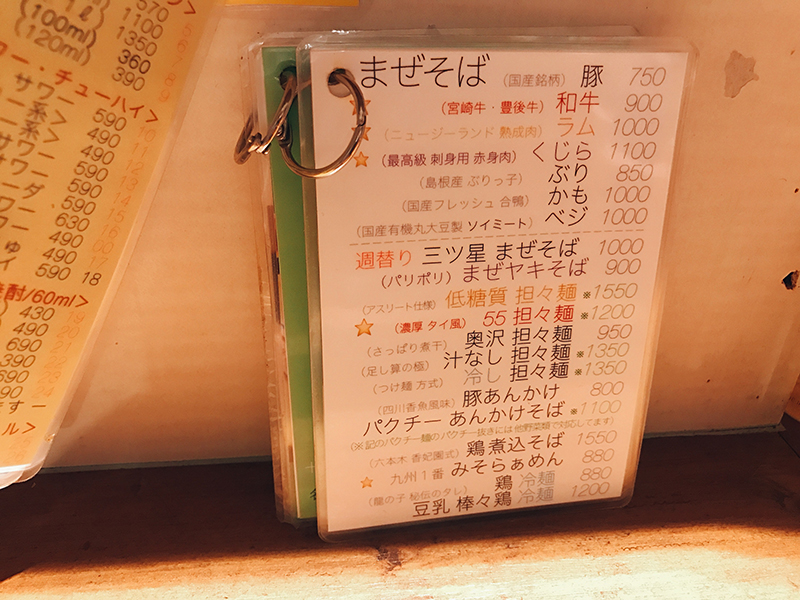 (100ml)
(120ml)
570
1100
1350
360
390
ワー・チューハイ>
サワー 590
系> 490
系> 490
サワー 590
ーダ 590
ワー 630
ワー 490
ゅ 490
イ 590 18
焼酎/60ml>
430
390
590
690
690
390
ますー
ル>
まぜそば (国産銘柄) 豚 750
(宮崎牛・豊後牛) 和牛 900
(ニュージーランド 熟成肉) ラム 1000
(最高級 刺身用 赤身肉) くじら 1100
(島根産 ぶりっ子) ぶり 850
(国産フレッシュ 合鴨) かも 1000
(国産有機丸大豆製 ソイミート) ベジ 1000
週替り 三ツ星 まぜそば 1000
(パリポリ) まぜヤキそば 900
(アスリート仕様) 低糖質 担々麺 ※1550
(濃厚 タイ風) 55 担々麺 ※1200
(さっぱり煮干) 奥沢 担々麺 950
(足し算の極) 汁なし 担々麺 ※1350
(つけ麺 方式) 冷し 担々麺 ※1350
(四川香魚風味) 豚あんかけ 800
パクチー あんかけそば ※1100
(※記のパクチー麺のパクチー抜きには 他野菜類で対応してます)
(六本木 香妃園式) 鶏煮込そば 1550
九州1番 みそらぁめん 880
鶏 冷麺 880
(龍の子 秘伝のタレ) 豆乳 棒々鶏 冷麺 1200